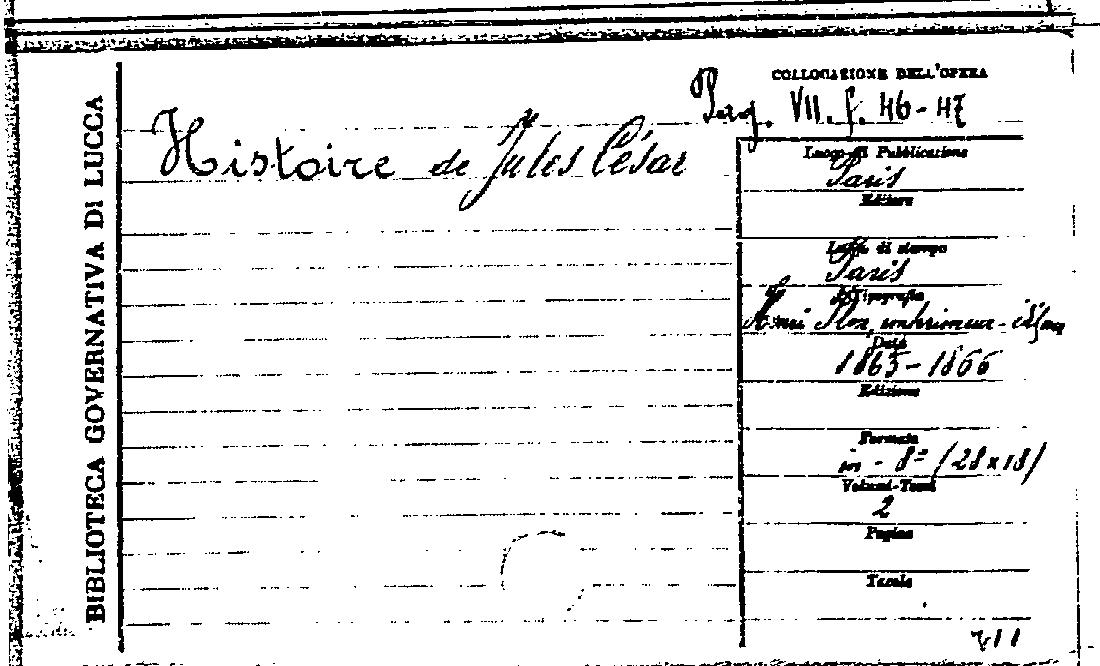 BIBLIOTECA GOVERNATIVA DI LUCCA
Histoire de Jules César
COLLOCAZIONE DELL'OPERA
VII. f. 46-47
Luogo di Pubblicazione
Paris
Editore
Luogo di stampa
Paris
Tipografia
Henri Plon, imprimeur -
Data
1865-1866
Edizione
Formato
in - 8º (28x18)
Volumi-Tomi
2
Pagine
Tavole